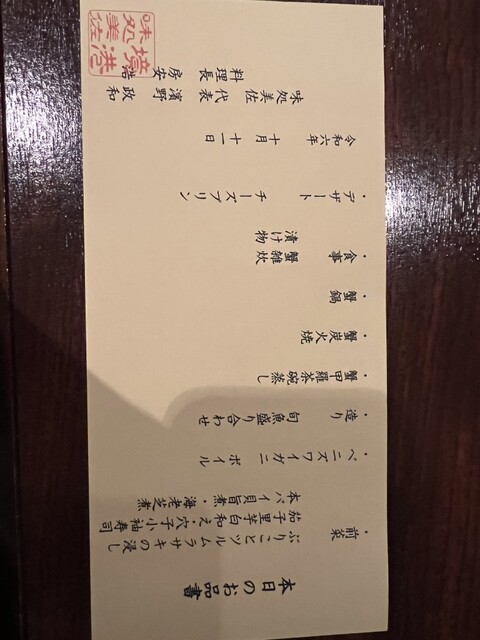 本日のお品書
・前菜
ぶりことツルムラサキの浸し
茄子里芋白和え・穴子小袖寿司
本バイ貝旨煮・海老芝煮
・ベニズワイガニ ボイル
・造り 旬魚盛り合わせ
・蟹甲羅茶碗蒸し
・蟹炭火焼
・蟹鍋
・食事 蟹雑炊
漬け物
・デザート チーズプリン
令和六年 十月 十一日
味処美佐 代表 濱野 政和
料理長 房安
境港
味処美佐